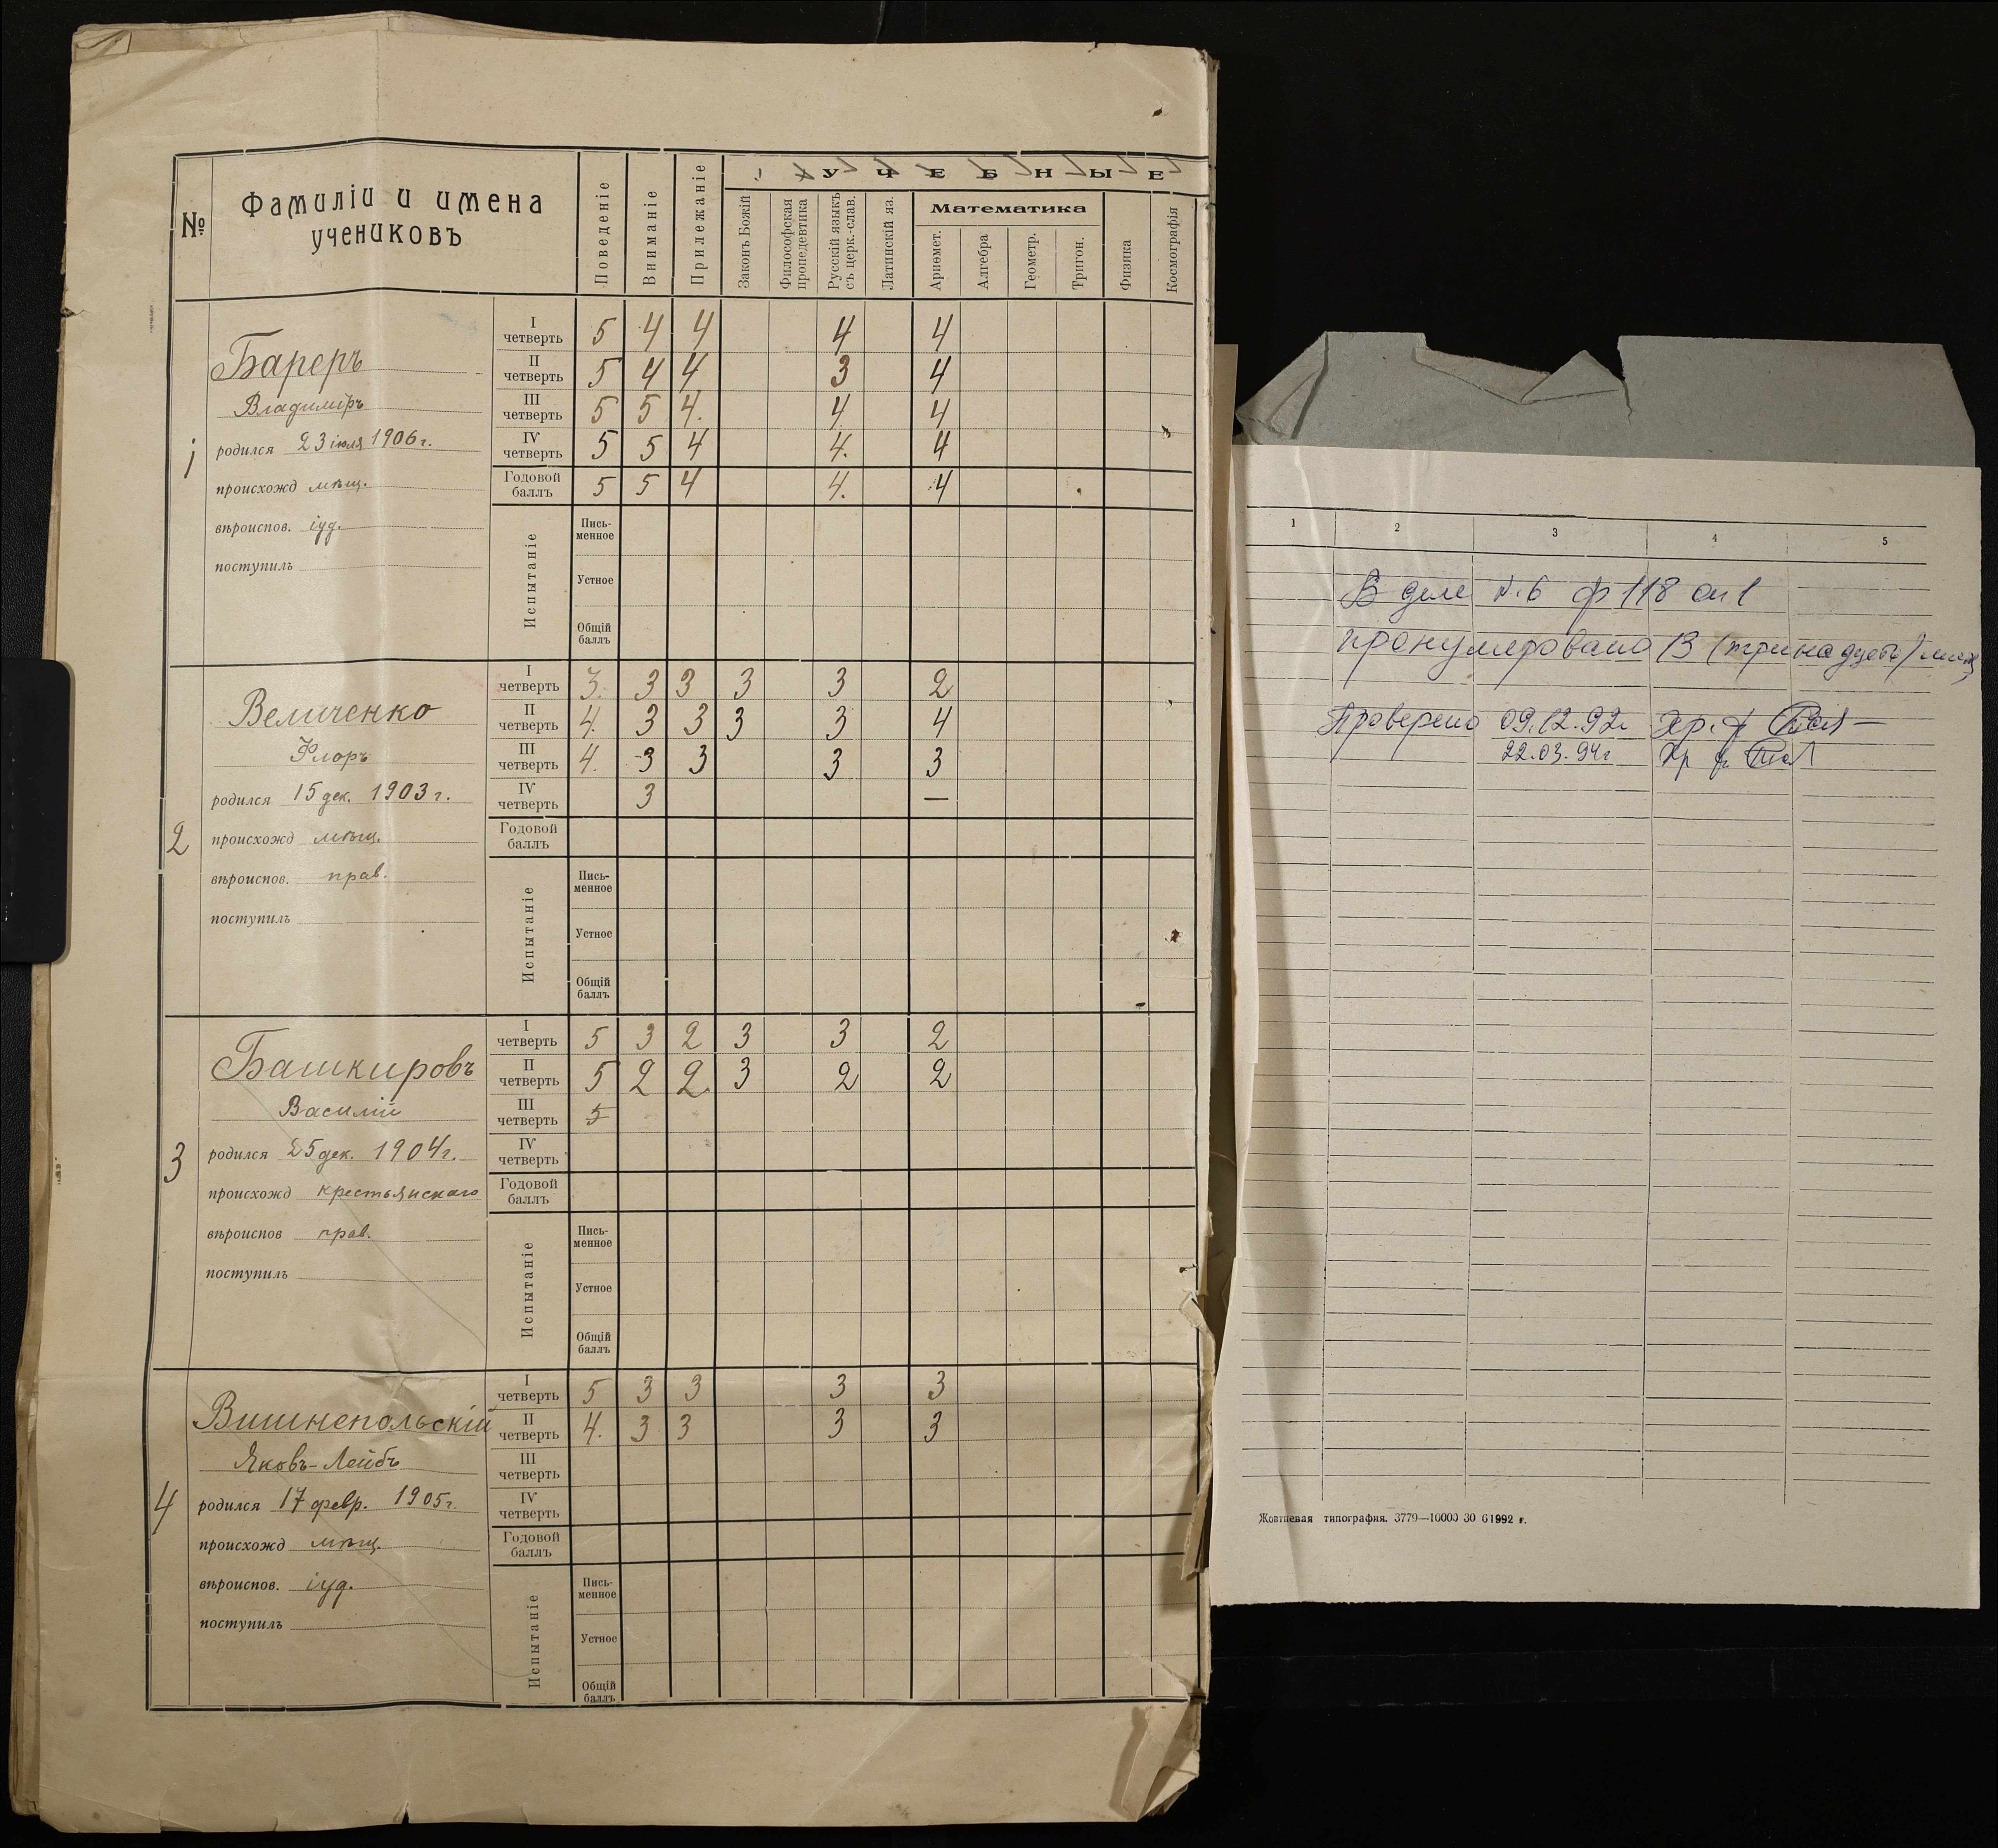 №
Фамиліи и имена
учениковъ
Поведеніе
Вниманіе
Прилежаніе
УЧЕБНЫЕ
Законъ Божій
Философская
пропедевтика
Русскій языкъ
съ церк.-слав.
Латинскій яз.
Математика
Ариѳмет.
Алгебра
Геометр.
Тригон.
Физика
Космографія
1
Бареръ
Владиміръ
родился 23 іюля 1906 г.
происхожд мѣщ.
вѣроиспов. іуд.
поступилъ
I четверть 5 4 4 4 4
II четверть 5 4 4 3 4
III четверть 5 5 4. 4 4
IV четверть 5 5 4 4. 4
Годовой баллъ 5 5 4 4. 4
Испытаніе
Пись-
менное
Устное
Общій
баллъ
2
Величенко
Флоръ
родился 15 дек. 1903 г.
происхожд мѣщ.
вѣроиспов. прав.
поступилъ
I четверть 3. 3 3 3 3 2
II четверть 4. 3 3 3 3 4
III четверть 4. 3 3 3 3
IV четверть 3 —
Годовой баллъ
Испытаніе
Пись-
менное
Устное
Общій
баллъ
3
Башкировъ
Василій
родился 25 дек. 1904 г.
происхожд крестьянскаго
вѣроиспов прав.
поступилъ
I четверть 5 3 2 3 3 2
II четверть 5 2 2. 3 2 2
III четверть 5
IV четверть
Годовой баллъ
Испытаніе
Пись-
менное
Устное
Общій
баллъ
4
Вишнепольскій
Яковъ-Лейбъ
родился 17 февр. 1905 г.
происхожд мѣщ.
вѣроиспов. іуд.
поступилъ
I четверть 5 3 3 3 3
II четверть 4. 3 3 3 3
III четверть
IV четверть
Годовой баллъ
Испытаніе
Пись-
менное
Устное
Общій
баллъ
1 2 3 4 5
В деле №6 ф 118 оп 1
пронумеровано 13 (тринадцать)
Проверено 09.12.92г Хр. ф
22.03.94г Хр ф
Жовтневая типография. 3779—10000 30 6 1992 г.